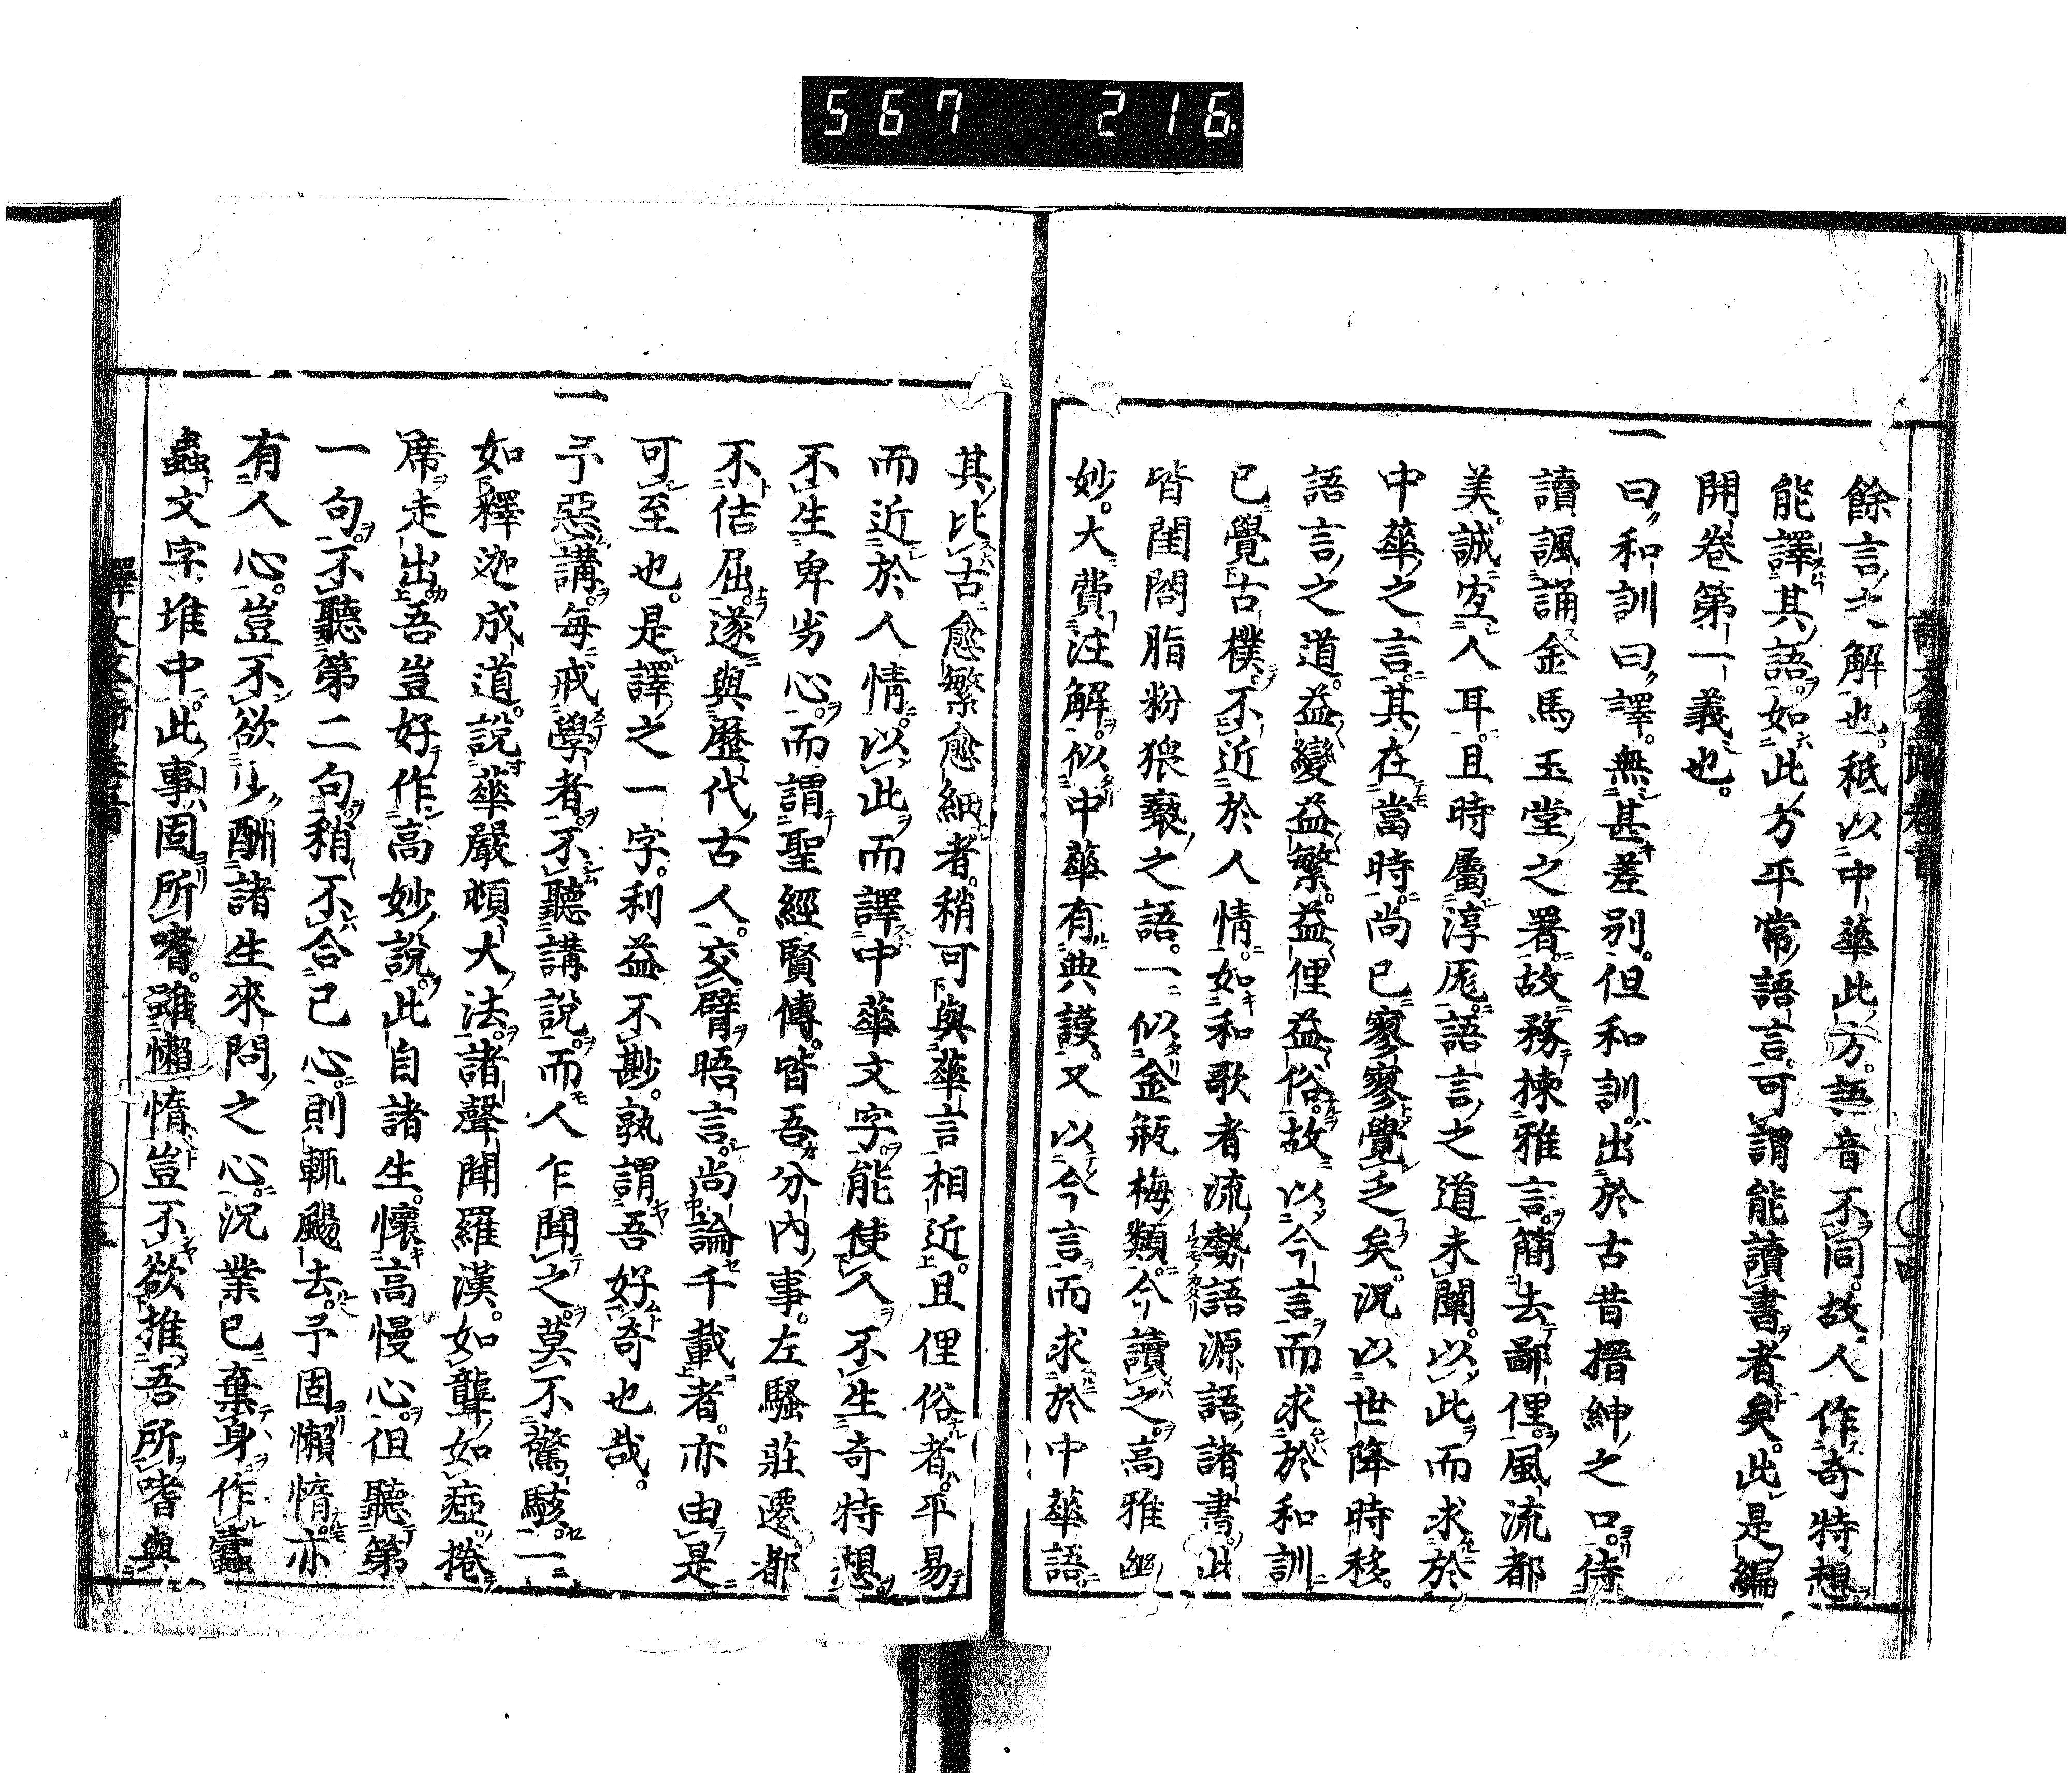 567 216
餘言之解也。秪以中華此方。語音不同。故人作奇特想
能譯其語。如此方平常語言。可謂能讀書者矣。此是編
開卷第一義也。
一曰和訓曰譯。無甚差別。但和訓出於古昔搢紳之口。侍
讀諷誦金馬玉堂之署。故務揀雅言。簡去鄙俚。風流都
美。誠宜人耳。且時屬淳厖。語言之道未闡。以此而求於
中華之言。其在當時。尚已寥寥覺乏矣。況以世降時移。
語言之道。益變益繁。益俚益俗。故以今言而求於和訓
已覺古樸。不近於人情。如和歌者流。勢語源語諸書。此
皆閨閤脂粉猥褻之語。一似金瓶梅類。今讀之。高雅幽
妙。大費注解。似中華有典謨。又以今言而求於中華語
其比古愈繁愈細者。稍可與華言相近。且俚俗者。平易
而近於人情。以此而譯中華文字。能使人不生奇特想
不生卑劣心。而謂聖經賢傳。皆吾分內事。左騷莊遷。都
不佶屈。遂與歷代古人。交臂晤言。尚論千載者。亦由是
可至也。是譯之一字。利益不尠。孰謂吾好奇也哉。
一予惡講。每戒學者。不聽講說。而人乍聞之。莫不驚駭。一二
如釋迦成道。說華嚴頓大法。諸聲聞羅漢。如聾如瘂。捲
席走出。吾豈好作高妙說。此自諸生。懷高慢心。但聽第
一句。不聽第二句。稍不合己心。則輒颺去。予固懶惰。亦
有人心。豈不欲少酬諸生來問之心。況業已棄身作蠹
蟲文字堆中。此事固所嗜。雖懶惰豈不欲推吾所嗜與